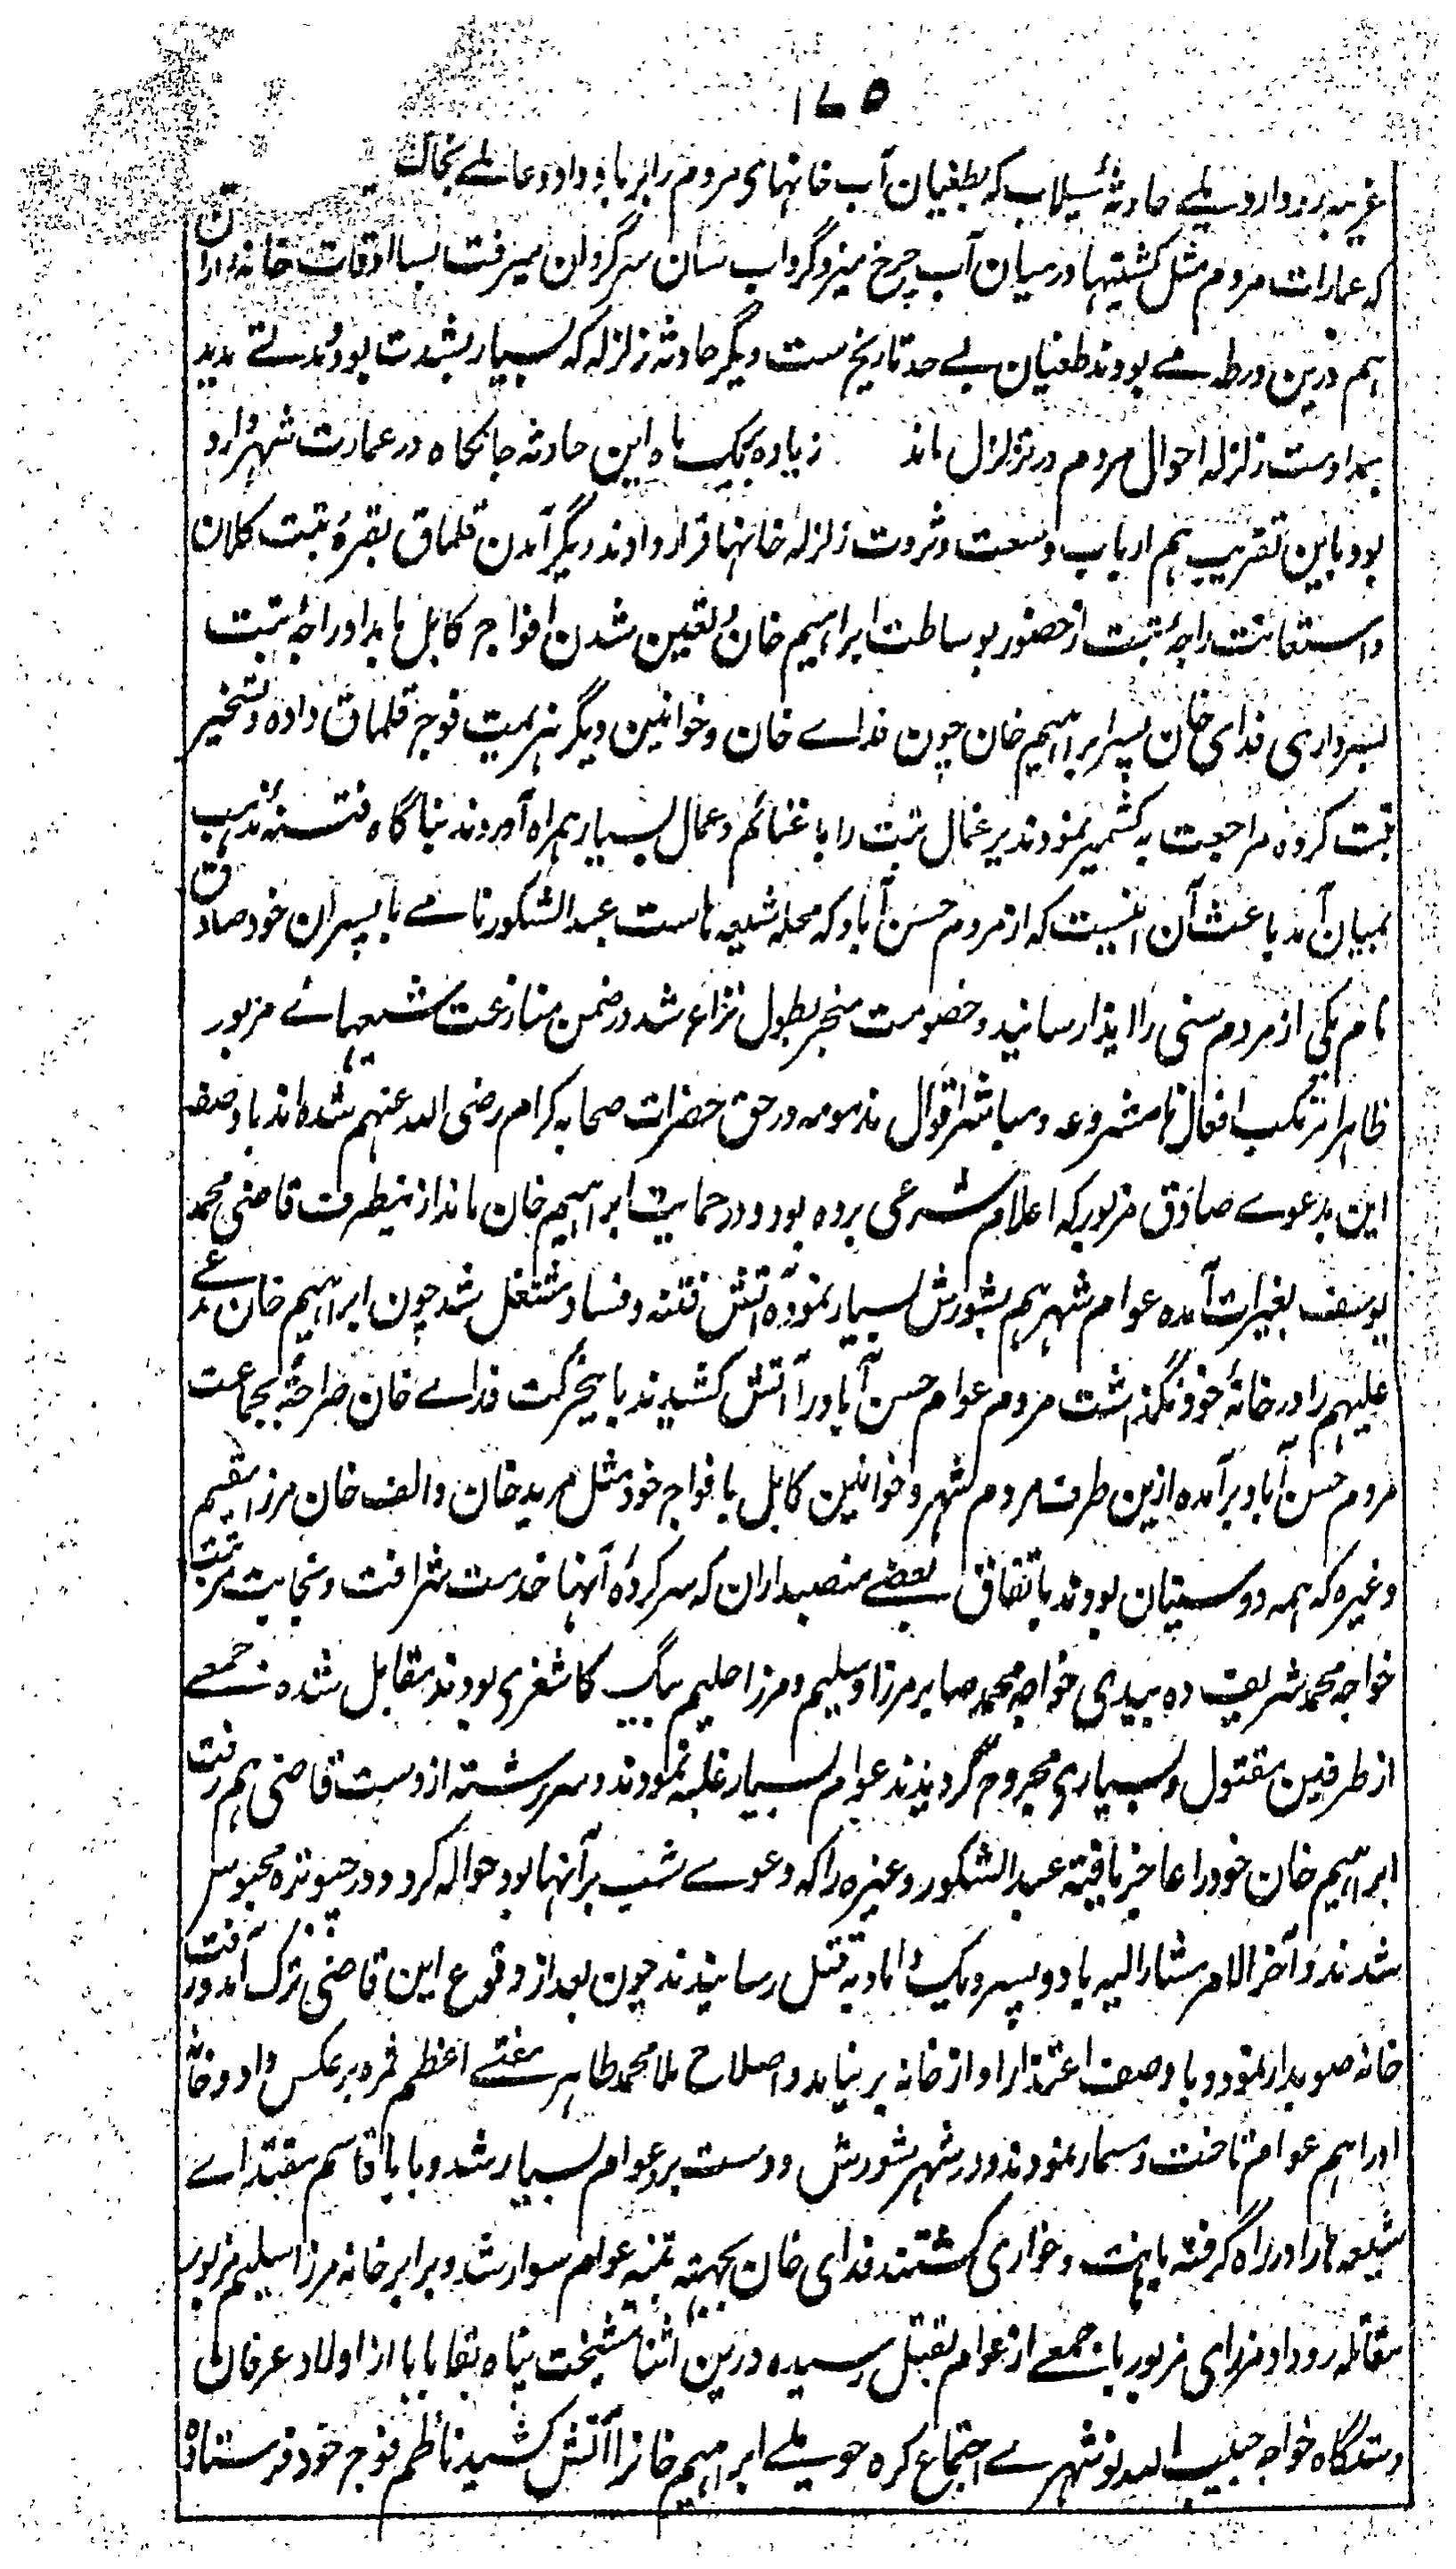 ۱۷۵
غریبه رو داد و یکے حادثۂ سیلاب که بطغیان آب خانهای مردم را بر باد داد و عالمے بخاک
که عمارات مردم مثل کشتیها درمیان آب چرخ میزد گرداب سان سرگردان میرفت بسا اوقات خانه داران
هم درین ورطه مے بودند طغیان بے حد تاریخ ست دیگر حادثه زلزله که بسیار بشدت بود مدتے مدید
بمداومت زلزله احوال مردم در تزلزل ماند زیاده بیک ماه این حادثه جانکاه در عمارت شهر وارد
بود باین تقریب هم ارباب وسعت و ثروت زلزله خانها قرار دادند دیگر آمدن قلماق بقرۂ تبت کلان
و استعانت راجۂ تبت از حضور بوساطت ابراهیم خان و تعین شدن افواج کابل بامداد راجۂ تبت
بسرداری فدای خان پسر ابراهیم خان چون فداے خان و خوانین دیگر هزیمت فوج قلماق داده و تسخیر
تبت کرده مراجعت به کشمیر نمودند یرغمال تبت را با غنائم و عمال بسیار همراه آوردند بناگاه فتنۂ مذهب
بمیان آمد باعث آن اینست که از مردم حسن آباد که محله شیعه هاست عبدالشکور نامے با پسران خود صادق
نام یکی از مردم سنی را ایذا رسانید و خصومت منجر بطول نزاع شد در ضمن منازعت شیعهاے مزبور
ظاهرا مرتکب افعال نامشروعه و مباشر اقوال مذمومه در حق حضرات صحابه کرام رضی الله عنهم شده‌اند باوصف
این بدعوے صادق مزبور که اعلام شرعی برده بود و در حمایت ابراهیم خان ماند ازینطرف قاضی محمد
یوسف بغیرت آمده عوام شهر هم بشورش بسیار نموده آتش فتنه و فساد مشتعل شد چون ابراهیم خان مدعے
علیهم را در خانۂ خود نگذاشت مردم عوام حسن آباد را آتش کشیدند باینحرکت فداے خان صراحةً بجماعت
مردم حسن آباد برآمده ازین طرف مردم شهر و خوانین کابل با فواج خود مثل مرید خان و الف خان مرزا مقیم
وغیره که همه دو سنیان بودند باتفاق بعضے منصبداران که سرکرده آنها خدمت شرافت و نجابت مرتبت
خواجه محمد شریف ده بیدی خواجه محمد صابر مرزا سلیم و مرزا حلیم بیگ کاشغری بودند مقابل شده جمعے
از طرفین مقتول و بسیاری مجروح گردیدند عوام بسیار غلبه نمودند و سررشته از دست قاضی هم رفت
ابراهیم خان خود را عاجز یافته عبدالشکور وغیره را که دعوے شب بر آنها بود حواله کرد و در چبوتره محبوس
شدند و آخر الامر مشار الیه با دو پسر و یک داماد به قتل رسانیدند چون بعد از وقوع این قاضی ترک آمد و رفت
خانه صوبدار نمود و باوصف اعتذار او از خانه بر نیامد و اصلاح ملا محمد طاهر مفتے اعظم ثمره برعکس داد و خانۂ
او را هم عوام تاخت و مسمار نمودند و در شهر شورش و دست برد عوام بسیار شد و بابا قاسم مقتداے
شیعه ها را در راه گرفته باهانت و خواری کشتند فدای خان بجهته تنبیه عوام سوار شد و برابر خانه مرزا سلیم مزبور
مقاتله رو داد و مرزای مزبور با جمعے از عوام بقتل رسیده درین اثنا مشیخت پناه بقا بابا از اولاد عرفان
دستگاه خواجه حبیب الله نوشهرے اجتماع کرده حویلے ابراهیم خانرا آتش کشید ناظم فوج خود فرستاده